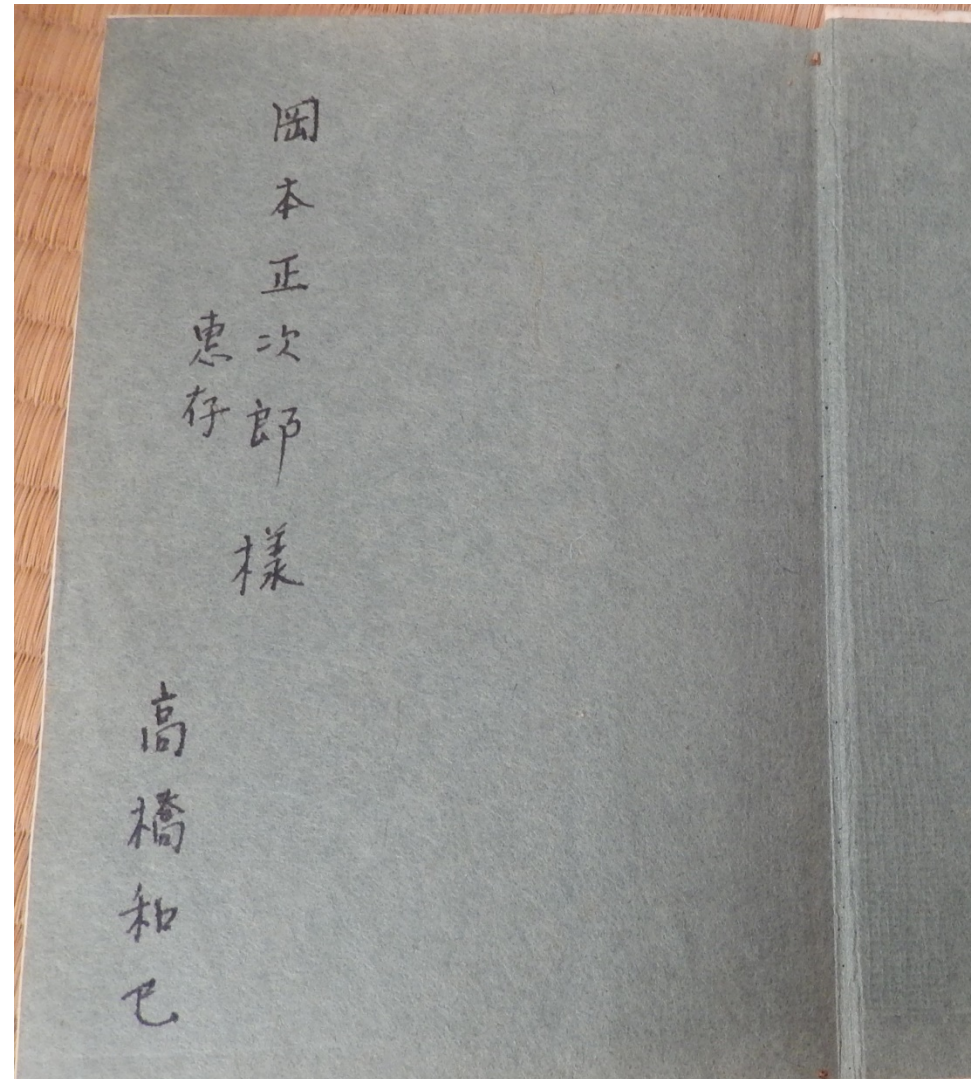 岡本正次郎様
恵存
高橋和巳